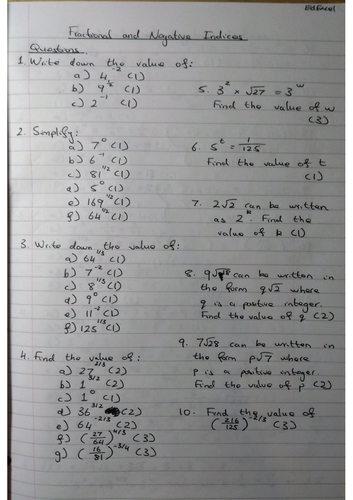 EdExcel
Fractional and Negative Indices
Questions
1. Write down the value of:
a) 4⁻² (1)
b) 9^½ (1)
c) 2⁻¹ (1)
2. Simplify:
a) 7⁰ (1)
b) 6⁻¹ (1)
c) 81^1/2 (1)
d) 5⁰ (1)
e) 169^1/2 (1)
f) 64^1/2 (1)
3. Write down the value of:
a) 64^1/3
b) 7⁻² (1)
c) 8^1/3 (1)
d) 9⁰ (1)
e) 11⁻² (1)
f) 125^1/3 (1)
4. Find the value of:
a) 27^2/3 (2)
b) 1^3/2 (2)
c) 1⁰ (1)
d) 36^3/2 (2)
e) 64^-2/3 (2)
f) (27/64)^4/3 (3)
g) (16/81)^-3/4 (3)
5. 3² × √27 = 3^w
Find the value of w
(3)
6. 5^t = 1/125
Find the value of t
(1)
7. 2√2 can be written
as 2^k. Find the
value of k (1)
8. 9√8 can be written in
the form q√2 where
q is a positive integer.
Find the value of q (2)
9. 7√28 can be written in
the form p√7 where
p is a positive integer.
Find the value of p (2)
10. Find the value of
(216/125)^-2/3 (3)